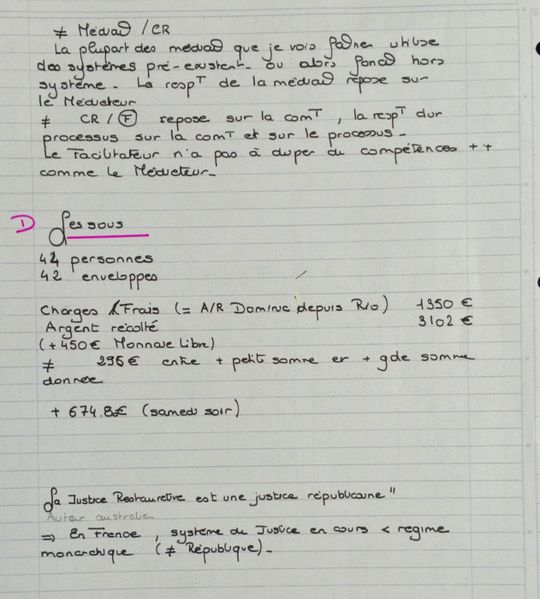 ≠ Médiad / CR
La plupart des médiad que je vois fadner utilise
des systèmes pré-existent. ou alors foncd hors
système. La respT de la médiad repose sur
le Médiateur
≠ CR / F repose sur la comT, la respT dur
processus sur la comT et sur le processus.
Le Facilitateur n'a pas à duper du compétences ++
comme le Médiateur.
D Les sous
44 personnes
42 enveloppes
Charges / Frais (= A/R Dominic depuis Rio) 1350 €
Argent récolté 3102 €
(+ 450 € Monnaie Libre)
≠ 296 € entre + petit somme er + gde somme
donnée
+ 674.8 € (samedi soir)
La Justice Restaurative est une justice républicaine"
Autour australie
⇒ En France, système du Justice en cours < regime
monarchique (≠ République).